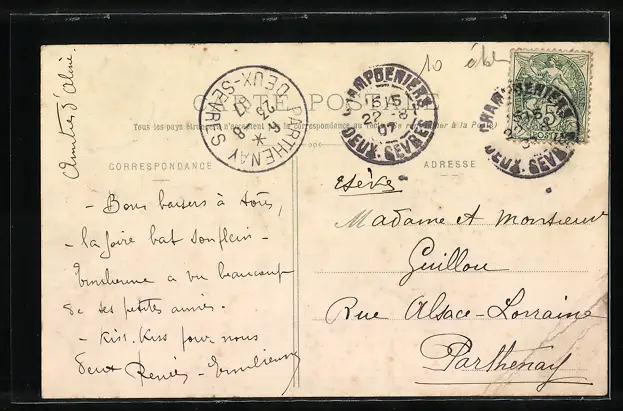 Amitiés d'Aline
10
CARTE POSTALE
Tous les pays étrangers n'acceptent pas la correspondance au recto (Se renseigner à la Poste)
CORRESPONDANCE
ADRESSE
PARTHENAY
DEUX-SEVRES
23
8
07
CHAMPDENIERS
15 15
22 -8
07
DEUX-SEVRES
CHAMPDENIERS
DEUX-SEVRES
5
POSTES
- Bons baisers à tous,
- la foire bat son plein -
Emilienne a vu beaucoup
de ses petites amies.
- Kiss. Kiss pour nous
deux Renée - Emilienne
Madame et Monsieur
Guillou
Rue Alsace-Lorraine
Parthenay